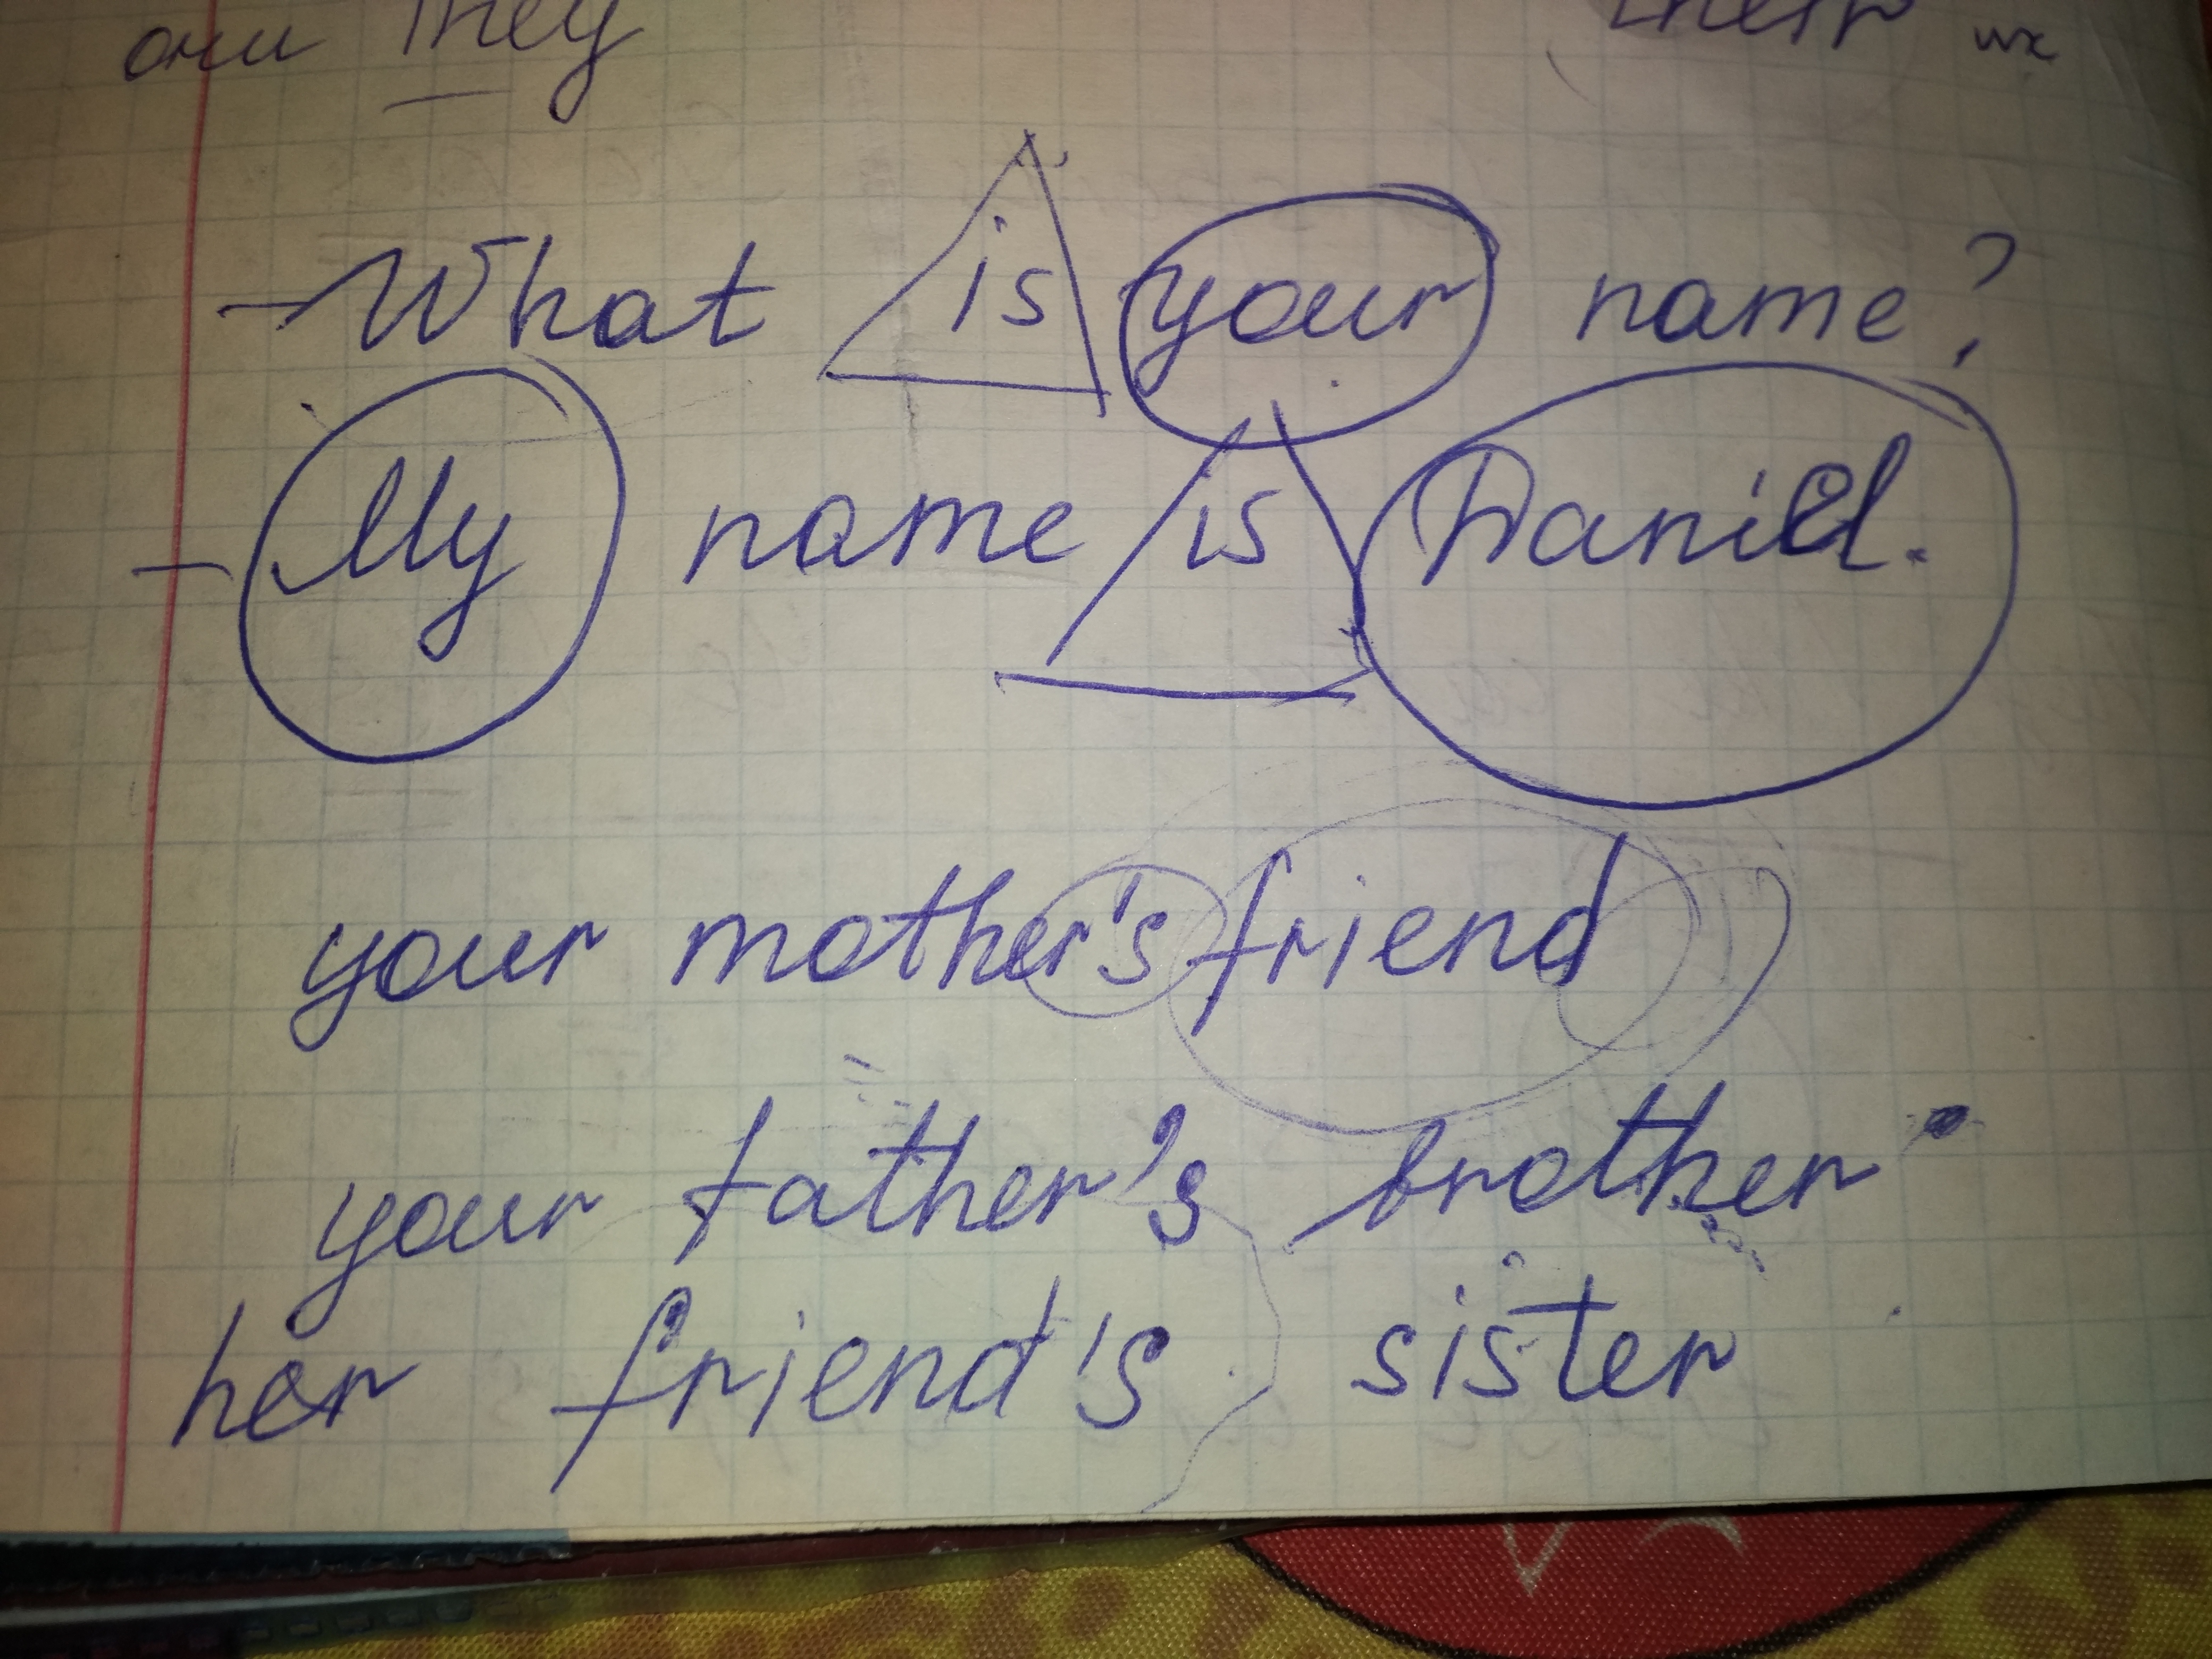 они They their их
- What is your name?
- My name is Daniel.
your mother's friend
your father's brother
her friend's sister